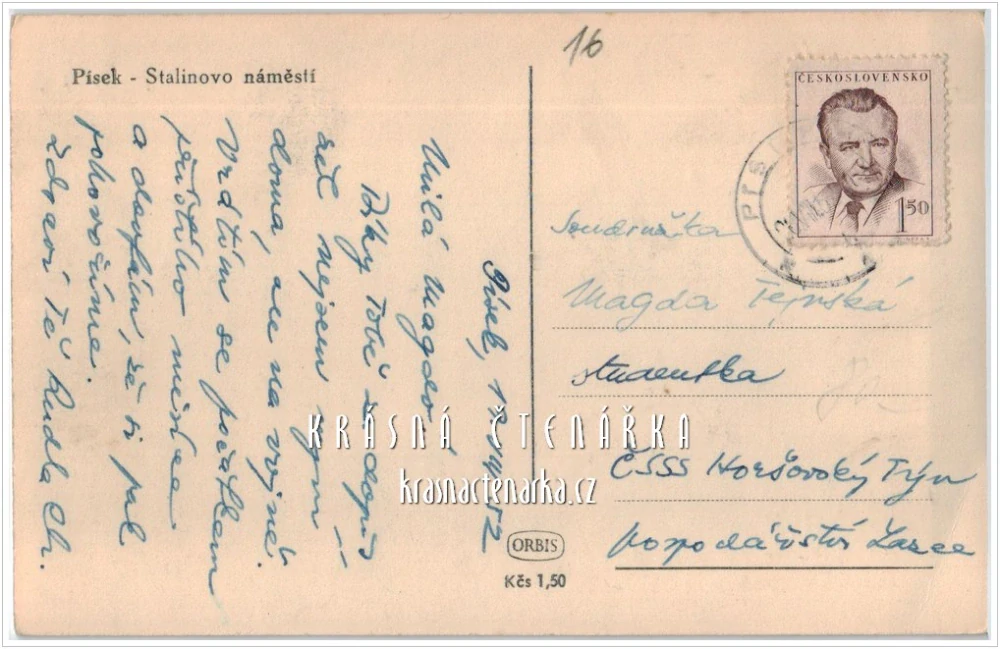 Písek - Stalinovo náměstí
16
ČESKOSLOVENSKO
1 50
PÍSEK
Písek, 19.
52
Milá Magdo!
Díky Tobě za dopis
než nejsem nyní
doma, ale na vojně.
Vrátím se počátkem
příštího měsíce
a doufám, že si pak
pohovoříme.
Zdraví Tě Ruda Ch.
Soudružka
Magda
studentka
ČSSS Horšovský Týn
hospodářství
KRÁSNÁ ČTENÁŘKA
krasnactenarka.cz
ORBIS
Kčs 1,50